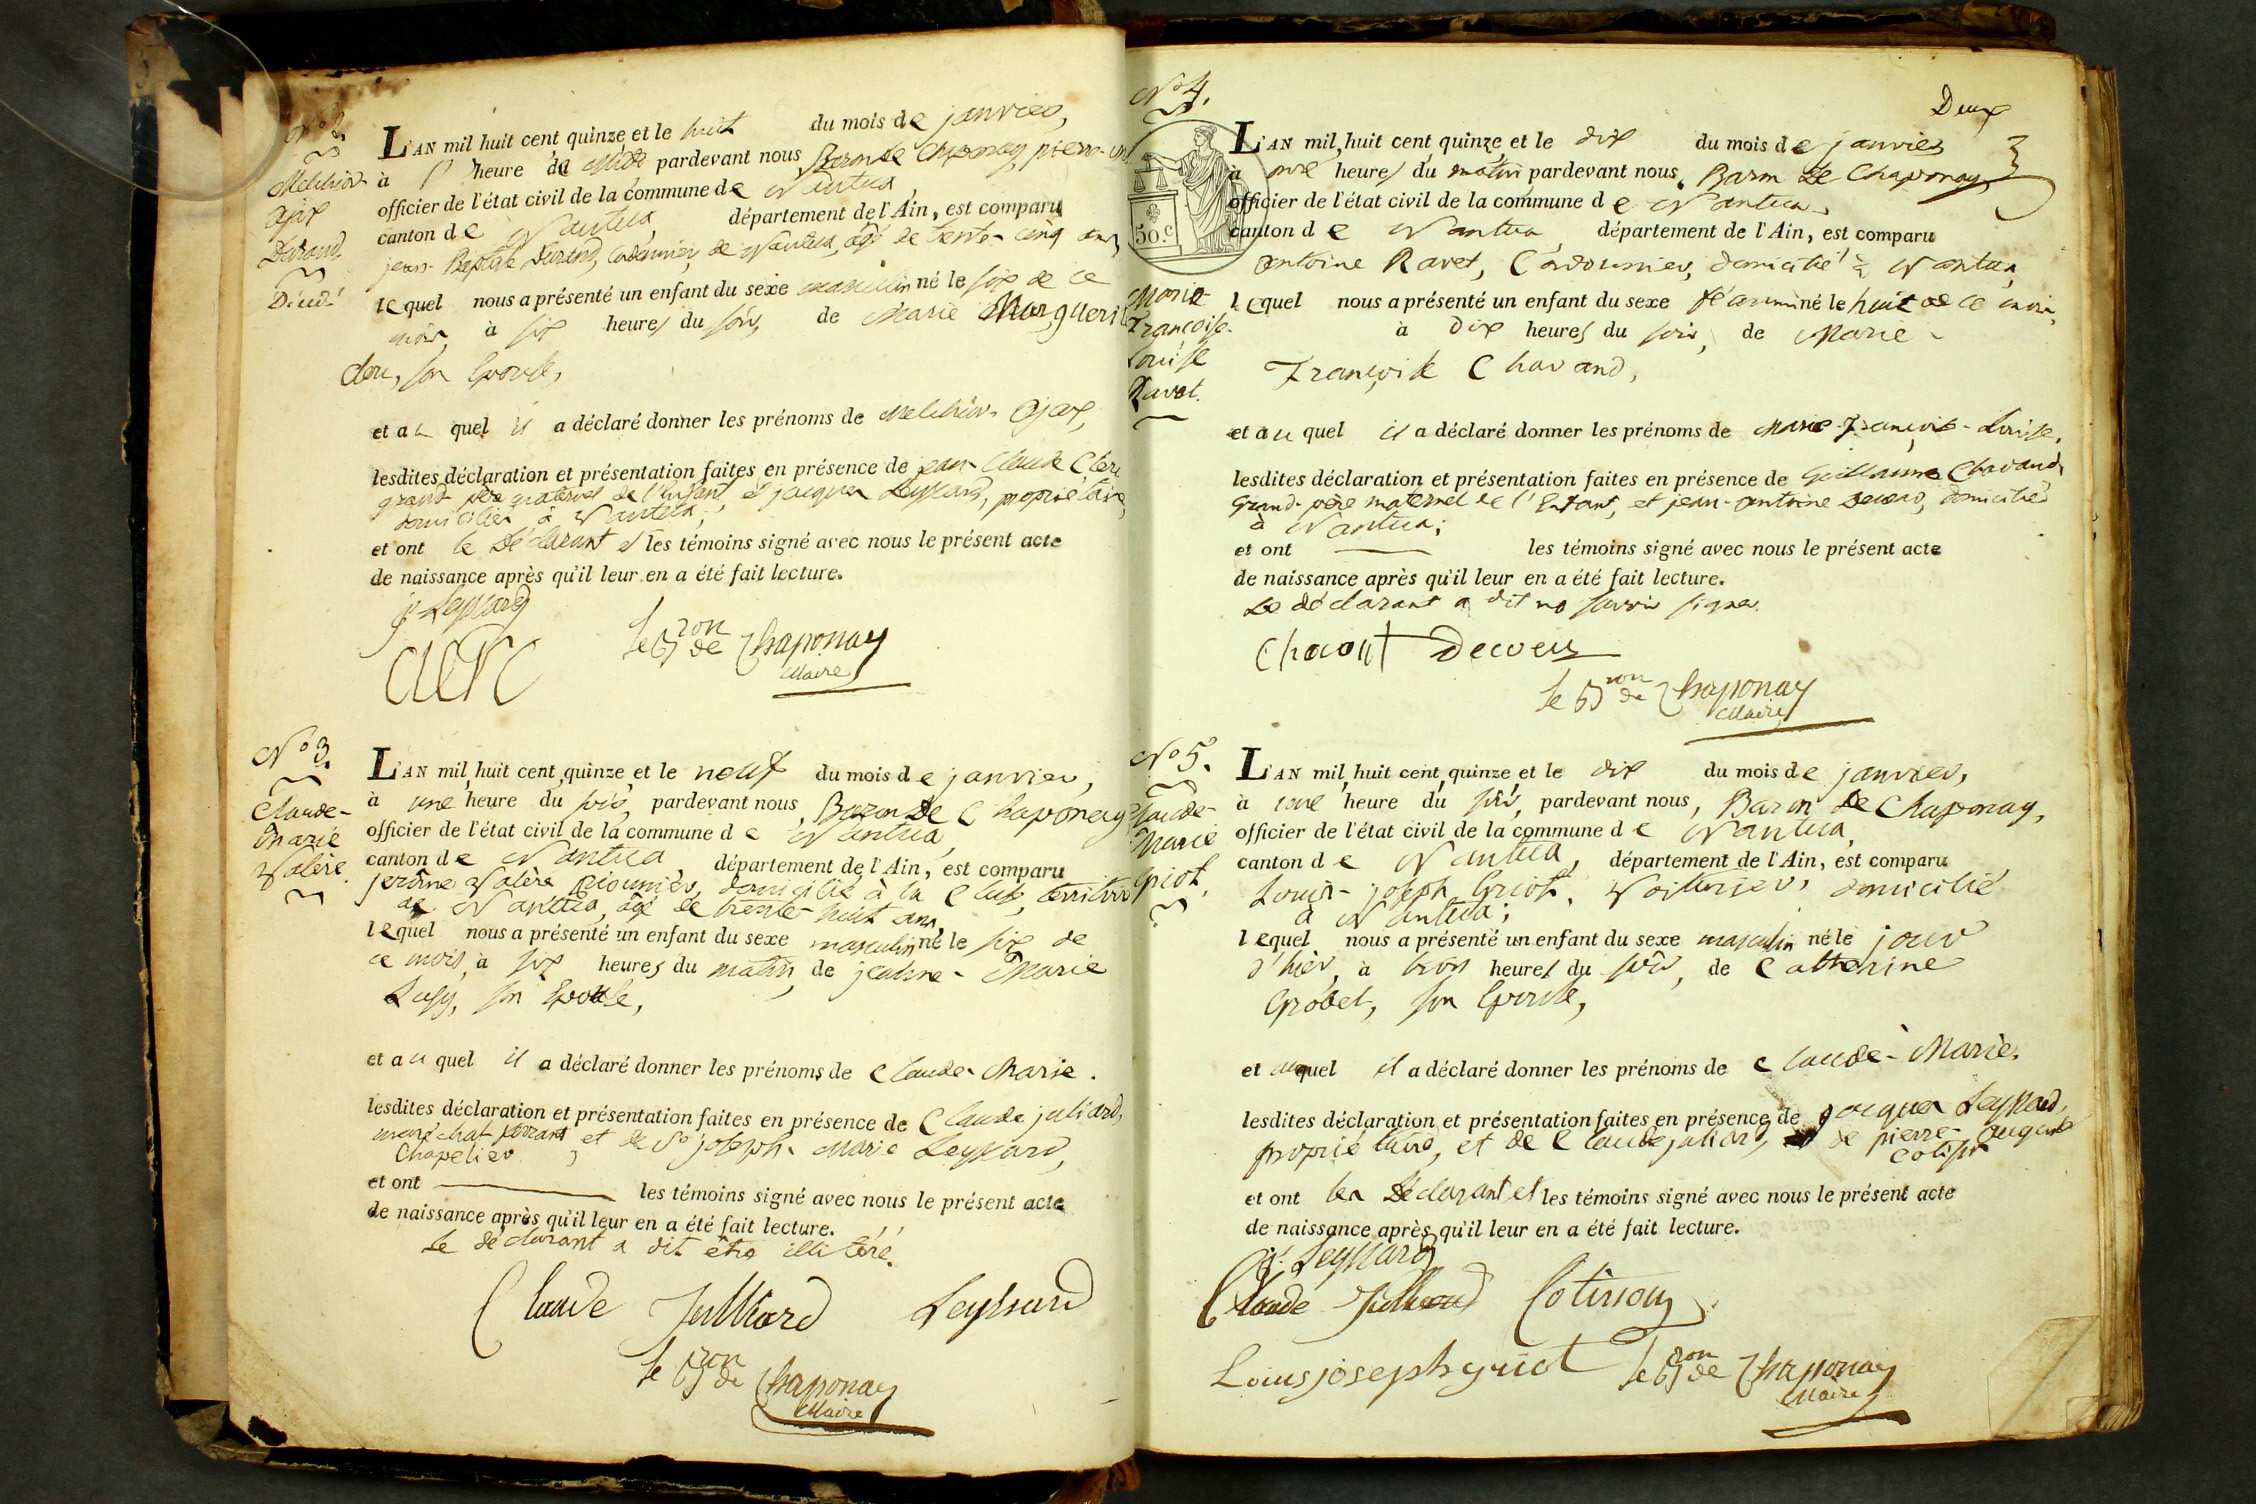 N° 2.
Melchior
Ajax
Durand.
Décédé
L'AN mil huit cent quinze et le huit du mois de janvier,
à heure du Midi pardevant nous Baron de Chaponay, pierre-
officier de l'état civil de la commune de Nantua,
canton de Nantua, département de l'Ain, est comparu
jean-Baptiste Durand, Cordonnier, de Nantua, âgé de trente-cinq ans,
lequel nous a présenté un enfant du sexe masculin né le six de ce
mois, à six heures du soir, de Marie Marguerite
Clerc, son Epouse,
et au quel il a déclaré donner les prénoms de Melchior Ajax,
lesdites déclaration et présentation faites en présence de jean-Claude Clerc
grand père maternel de l'Enfant, et jacques Leyssard, propriétaire,
domiciliés à Nantua;
et ont le Déclarant et les témoins signé avec nous le présent acte
de naissance après qu'il leur en a été fait lecture.
js Leyssard
Clerc
le Bron de Chaponay
Maire
N° 3.
Claude-
Marie
Valère.
L'AN mil huit cent quinze et le neuf du mois de janvier,
à une heure du soir, pardevant nous, Baron de Chaponay
officier de l'état civil de la commune de Nantua,
canton de Nantua département de l'Ain, est comparu
jerôme Valère pionnier, domicilié à la Cluse, territoire
de Nantua, âgé de trente-huit ans,
lequel nous a présenté un enfant du sexe masculin né le six de
ce mois, à six heures du matin, de jeanne-Marie
son Epouse,
et au quel il a déclaré donner les prénoms de Claude-Marie.
lesdites déclaration et présentation faites en présence de Claude juliard,
maréchal ferrant, et de Sr joseph-Marie Leyssard,
Chapelier;
et ont les témoins signé avec nous le présent acte
de naissance après qu'il leur en a été fait lecture.
Le déclarant a dit être illitéré.
Claude Julliard Leyssard
le Bron de Chaponay
Maire
Deux
N° 4.
50.c
Marie-
Françoise-
Louise
Ravet.
L'AN mil huit cent quinze et le dix du mois de janvier
à onze heures du matin pardevant nous, Baron de Chaponay
officier de l'état civil de la commune de Nantua,
canton de Nantua, département de l'Ain, est comparu
antoine Ravet, Cordonnier, domicilié à Nantua,
lequel nous a présenté un enfant du sexe féminin né le huit de ce mois,
à dix heures du soir, de Marie-
Françoise Chavand,
et au quel il a déclaré donner les prénoms de Marie-Françoise-Louise.
lesdites déclaration et présentation faites en présence de Guillaume Chavand,
Grand-père maternel de l'Enfant, et jean-antoine domiciliés
à Nantua;
et ont les témoins signé avec nous le présent acte
de naissance après qu'il leur en a été fait lecture.
Le déclarant a dit ne savoir signer.
le Bron de Chaponay
Maire
N° 5.
Claude-
Marie
Griot.
L'AN mil huit cent quinze et le dix du mois de janvier,
à une heure du soir, pardevant nous, Baron de Chaponay,
officier de l'état civil de la commune de Nantua,
canton de Nantua, département de l'Ain, est comparu
Louis-joseph Griot, Voiturier, domicilié
à Nantua;
lequel nous a présenté un enfant du sexe masculin né le jour
d'hier, à trois heures du soir, de Catherine
Grobet, son Epouse,
et auquel il a déclaré donner les prénoms de Claude-Marie.
lesdites déclaration et présentation faites en présence de jacques Leyssard,
propriétaire, et de Claude juliard, de pierre-
et ont les Déclarant et les témoins signé avec nous le présent acte
de naissance après qu'il leur en a été fait lecture.
js Leyssard
Claude Julliard Cotinon
Louis joseph griot le Bron de Chaponay
Maire